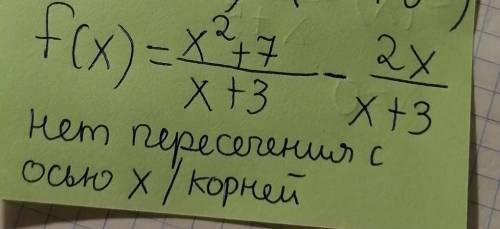 f(x) = \frac{x^2+7}{x+3} - \frac{2x}{x+3}
нет пересечения с
осью x / корней